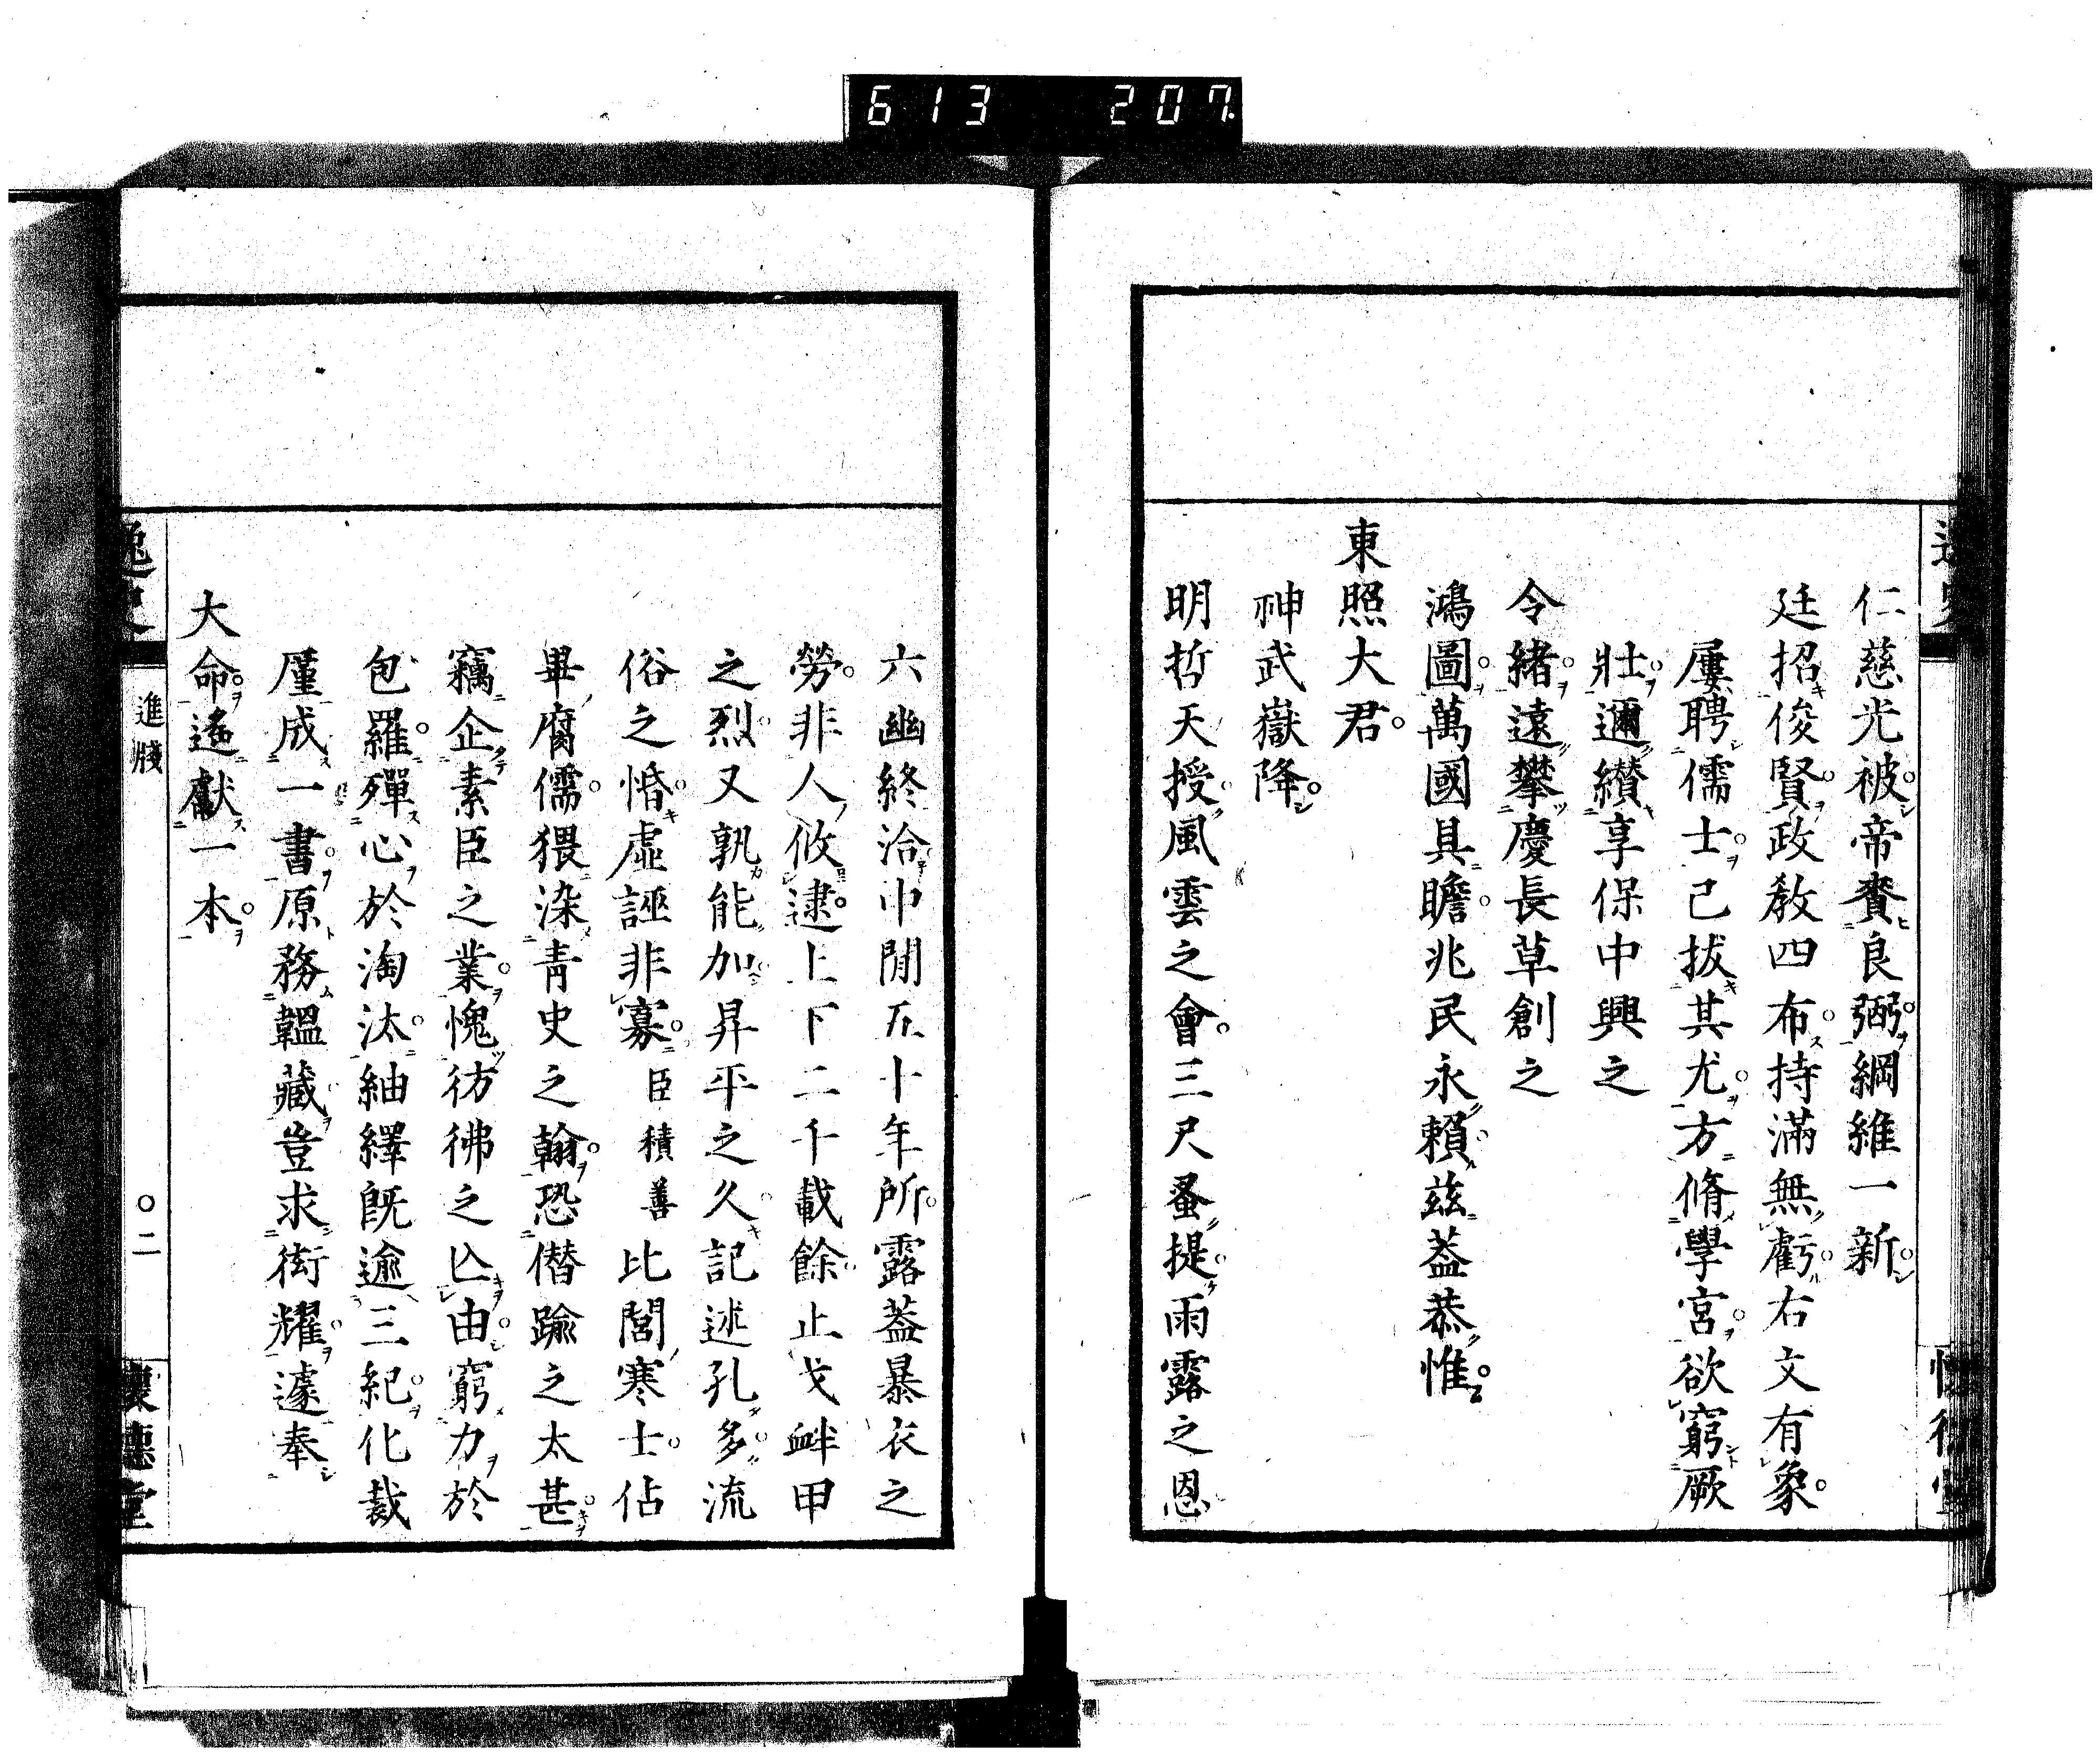 613 207
仁慈光被帝賚良弼綱維一新
廷招俊賢政教四布持滿無虧右文有象
屢聘儒士己拔其尤方脩學宮欲窮厥
壯邇纉享保中興之
令緒遠攀慶長草創之
鴻圖萬國具瞻兆民永賴茲葢恭惟
東照大君
神武嶽降
明哲天授風雲之會三尺蚤提雨露之恩
六幽終洽中閒五十年所露葢暴衣之
勞非人攸逮上下二千載餘止戈衅甲
之烈又孰能加昇平之久記述孔多流
俗之惛虛誣非寡臣積善比閭寒士佔
畢腐儒猥染青史之翰恐僭踰之太甚
竊企素臣之業愧彷彿之亾由窮力於
包羅殫心於淘汰紬繹既逾三紀化裁
厪成一書原務韞藏豈求衒耀遽奉
大命遙獻一本
逸史
進牋
○二
懷德堂